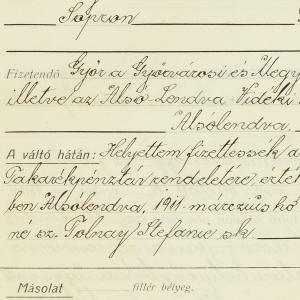 Sopron
Fizetendő Győr a Győrvárosi és Megy
illetve az Alsó-Lendva-Vidéki
Alsólendva.
A váltó hátán: Helyettem fizettessék a
Takarékpénztár rendeletére, érté
ben Alsólendva, 1911 márczius hó
né sz. Tolnay Stefanie sk.
Másolat fillér bélyeg.